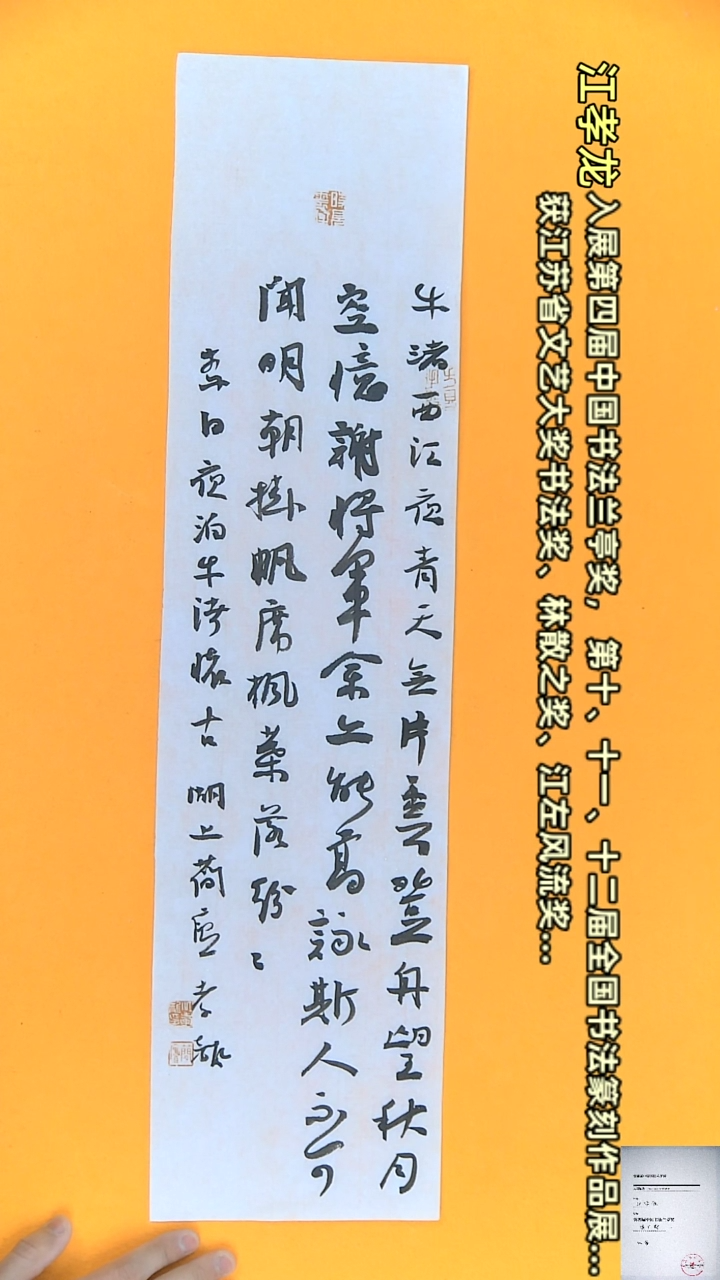 江孝龙 入展第四届中国书法兰亭奖，第十、十一、十二届全国书法篆刻作品展...
获江苏省文艺大奖书法奖、林散之奖、江左风流奖...
牛渚西江夜青天无片雲登舟望秋月
空憶謝將軍余上能高詠斯人不可
聞明朝掛帆席楓葉落紛〻
李白夜泊牛渚懷古 湖上荷廬孝龍